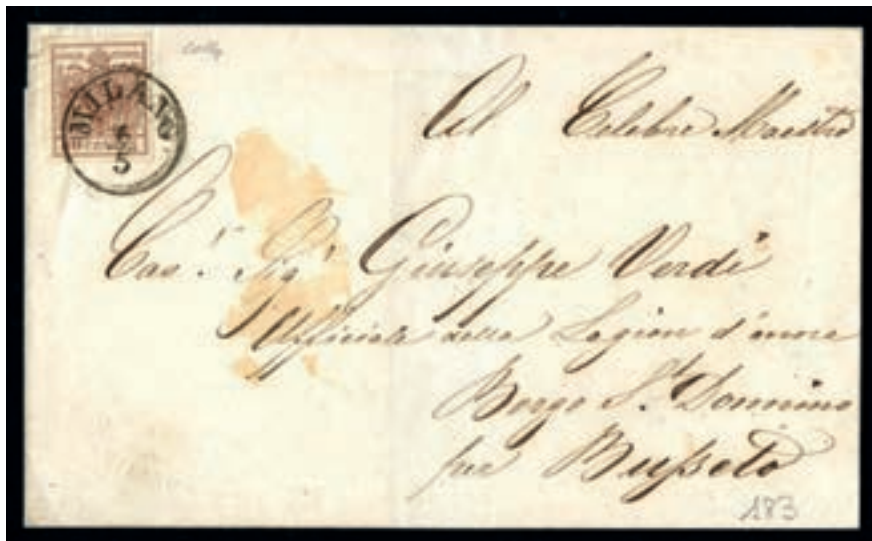 MILANO
5
Al Celebre Maestro
Cav.r Sig.r Giuseppe Verdi
Ufficiale della Legion d'onore
Borgo S.t Donnino
per Busseto
183